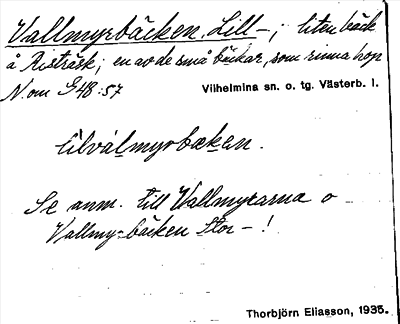 Vallmyrbäcken, Lill-; liten bäck
å Risträsk; en av de små bäckar, som rinna hop
N om G48:57
Vilhelmina sn. o. tg. Västerb. l.
lilválmyrbækən.
Se anm. till Vallmyrarna o
Vallmyrbäcken Stor-!
Thorbjörn Eliasson, 1935.